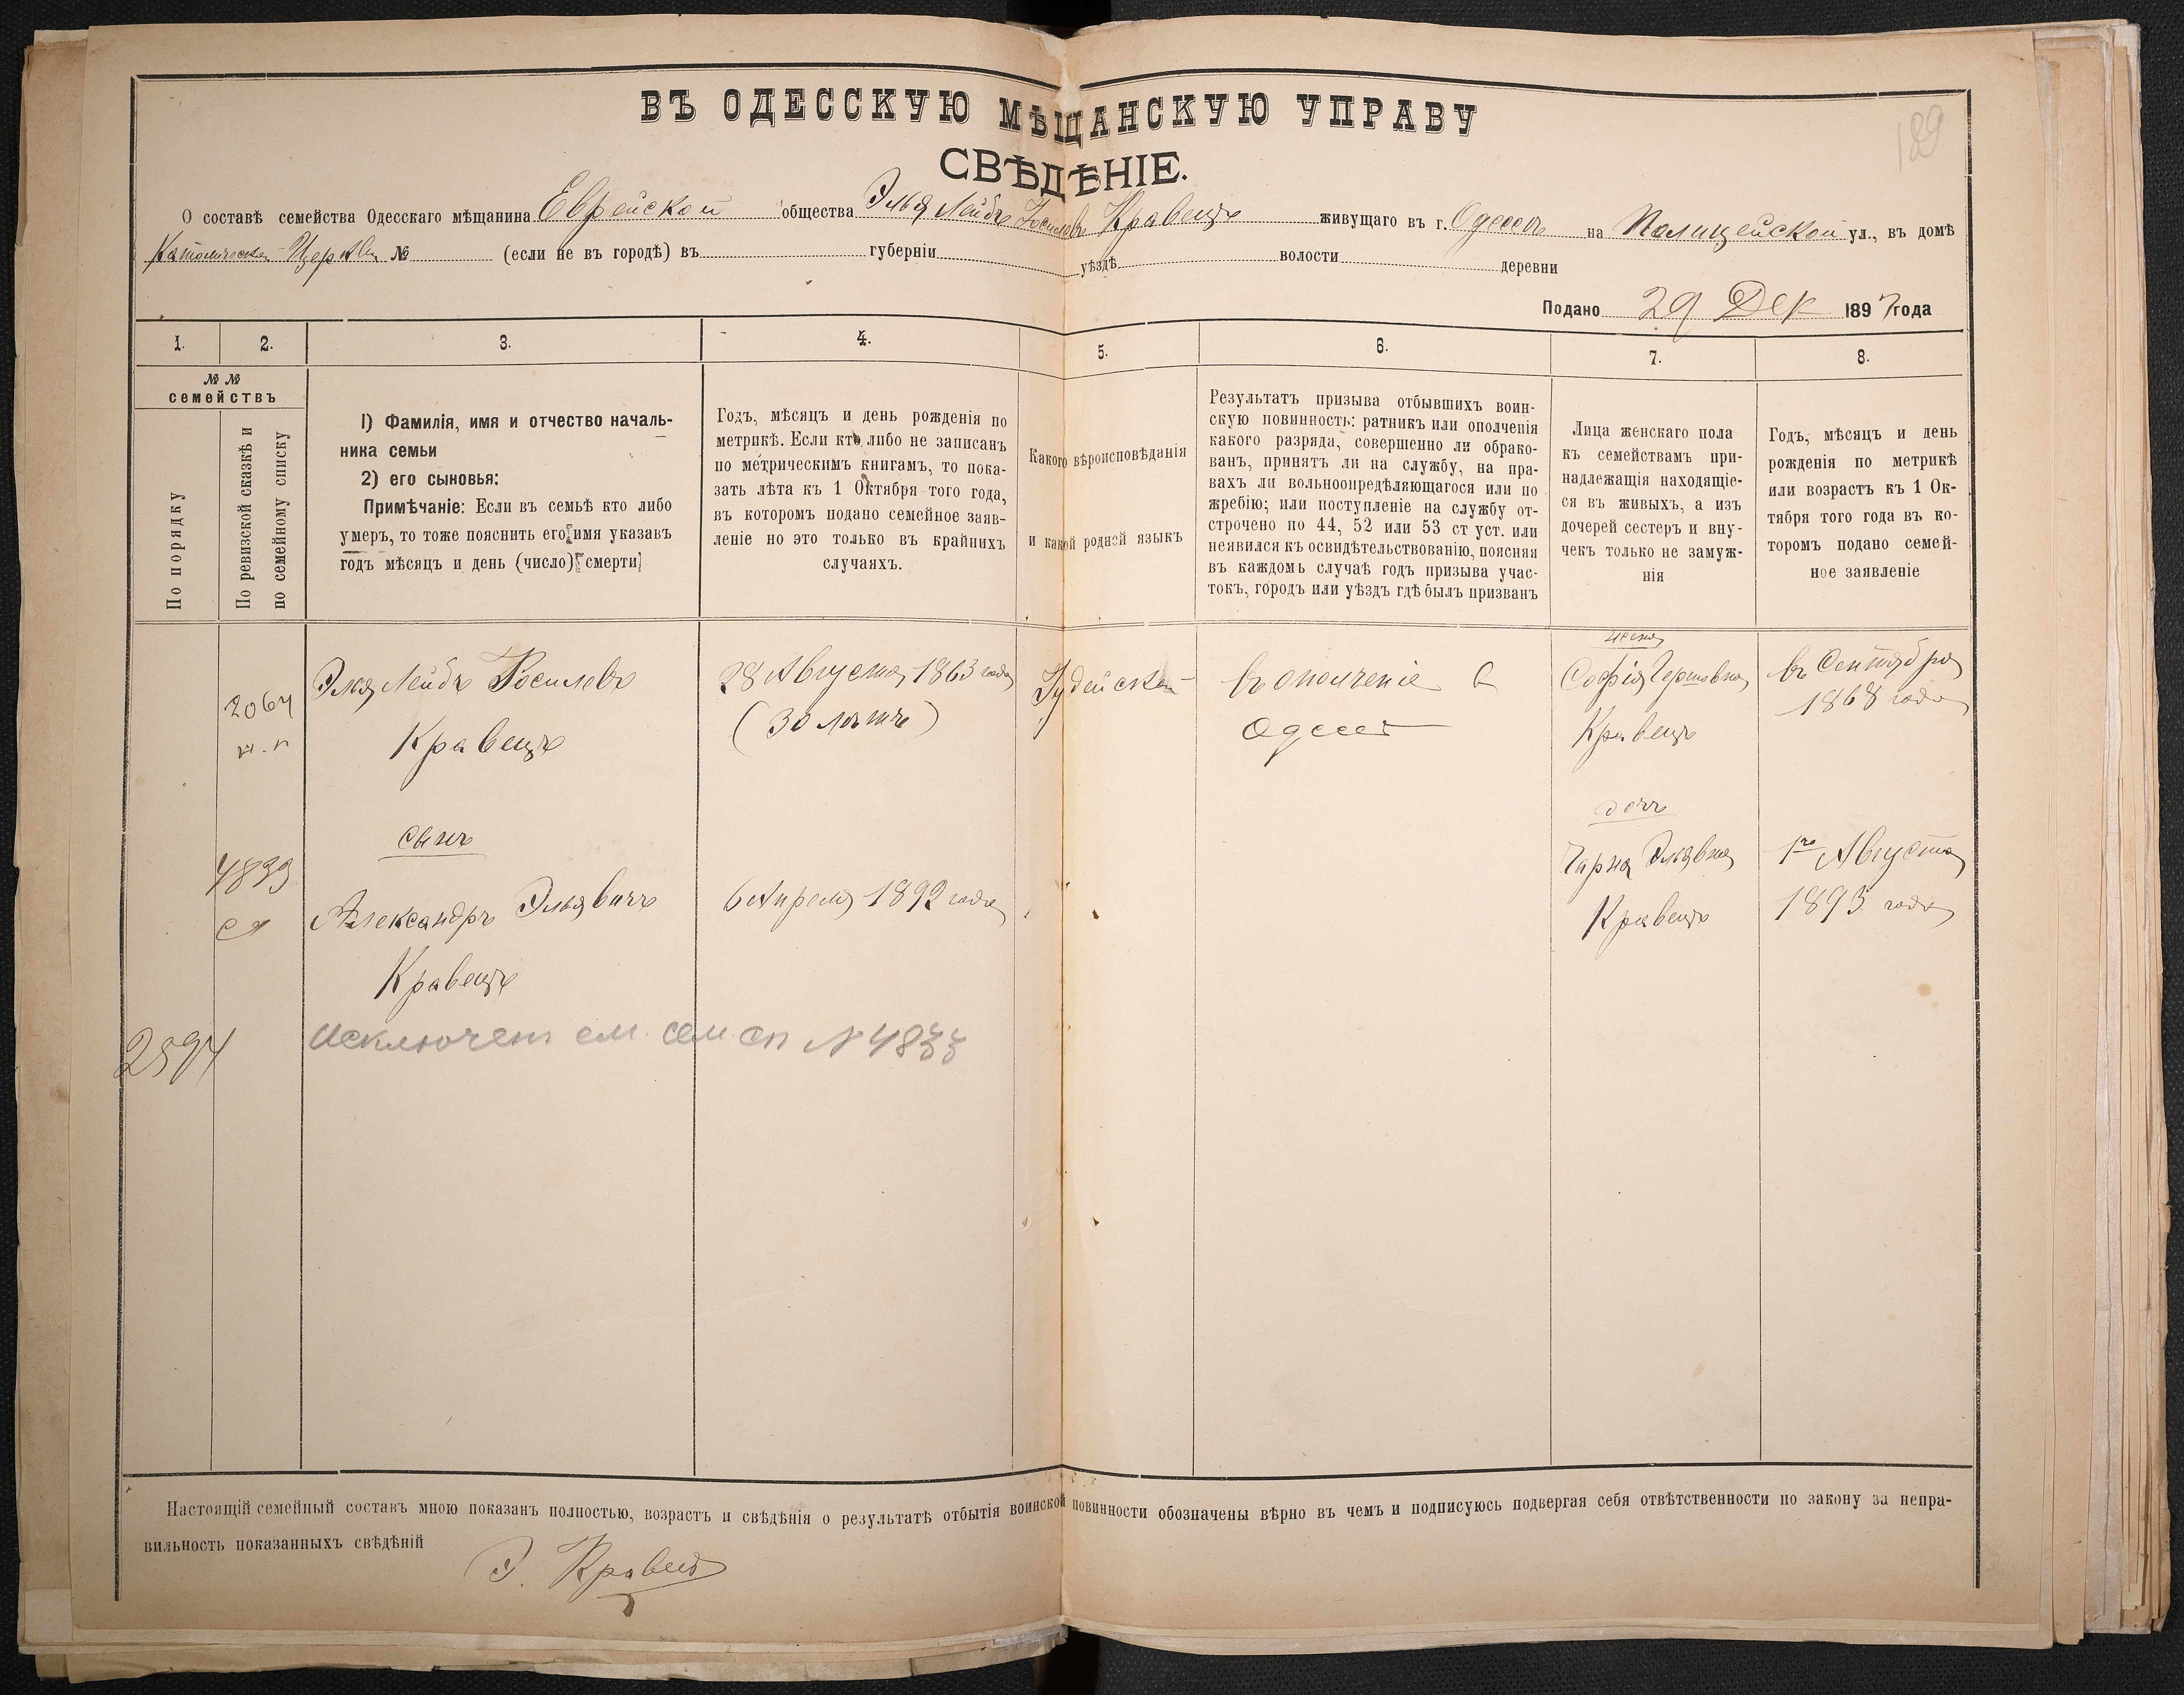 189
ВЪ ОДЕССКУЮ МѢЩАНСКУЮ УПРАВУ
СВѢДѢНІЕ.
О составѣ семейства Одесскаго мѣщанина Еврейской общества Элья Лейбъ Іосилевъ Кравецъ живущаго въ г. Одессѣ на Полицейской ул., въ домѣ
Католическ. Церкви № (если не въ городѣ) въ губерніи уѣздѣ волости деревни
Подано 29 Дек 1897 года
1. 2. 3. 4. 5. 6. 7. 8.
№ № семействъ
По порядку
По ревизской сказкѣ и
по семейному списку
1) Фамилія, имя и отчество началь-
ника семьи
2) его сыновья:
Примѣчаніе: Если въ семьѣ кто либо
умеръ, то тоже пояснить его имя указавъ
годъ мѣсяцъ и день (число) смерти
Годъ, мѣсяцъ и день рожденія по
метрикѣ. Если кто либо не записанъ
по метрическимъ книгамъ, то пока-
зать лѣта къ 1 Октября того года,
въ которомъ подано семейное заяв-
леніе но это только въ крайнихъ
случаяхъ.
Какого вѣроисповѣданія
и какой родной языкъ
Результатъ призыва отбывшихъ воин-
скую повинность: ратникъ или ополченія
какого разряда, совершенно ли обрако-
ванъ, принятъ ли на службу, на пра-
вахъ ли вольноопредѣляющагося или по
жребію; или поступленіе на службу от-
строчено по 44, 52 или 53 ст уст. или
неявился къ освидѣтельствованію, поясняя
въ каждомъ случаѣ годъ призыва учас-
токъ, городъ или уѣздъ гдѣ былъ призванъ
Лица женскаго пола
къ семействамъ при-
надлежащія находящіе-
ся въ живыхъ, а изъ
дочерей сестеръ и вну-
чекъ только не замуж-
нія
Годъ, мѣсяцъ и день
рожденія по метрикѣ
или возрастъ къ 1 Ок-
тября того года въ ко-
торомъ подано семей-
ное заявленіе
2064
Элья Лейбъ Іосилевъ
Кравецъ
28 Августа 1863 года
(30 лѣтъ)
Іудейской
въ ополченіе в
Одессѣ
жена
Софія Гершовна
Кравецъ
въ Сентября
1868 года
4833
сп
сынъ
Александръ Эльявичъ
Кравецъ
6 Апреля 1892 года
дочь
Чарна Эльявна
Кравецъ
1го Августа
1893 года
2594
Исключенъ см. сем сп № 4833
Настоящій семейный составъ мною показанъ полностью, возрастъ и свѣдѣнія о результатѣ отбытія воинской повинности обозначены вѣрно въ чемъ и подписуюсь подвергая себя отвѣтственности по закону за непра-
вильность показанныхъ свѣдѣній
Э. Кравецъ